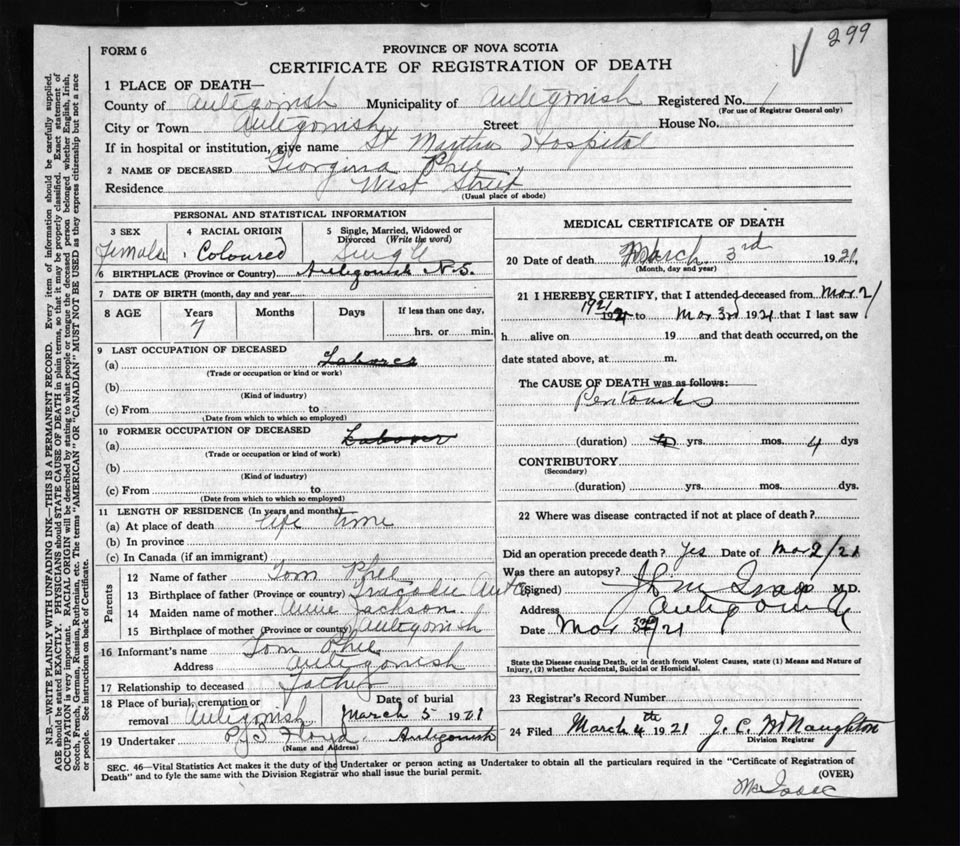 299
FORM 6
PROVINCE OF NOVA SCOTIA
CERTIFICATE OF REGISTRATION OF DEATH
1 PLACE OF DEATH—
County of Antigonish Municipality of Antigonish Registered No. 1
(For use of Registrar General only)
City or Town Antigonish Street House No.
If in hospital or institution, give name St Martha Hospital
2 NAME OF DECEASED Georgina Phee
Residence West Street
(Usual place of abode)
PERSONAL AND STATISTICAL INFORMATION
3 SEX
Female
4 RACIAL ORIGIN
Coloured
5 Single, Married, Widowed or Divorced (Write the word)
Single
6 BIRTHPLACE (Province or Country) Antigonish N.S.
7 DATE OF BIRTH (month, day and year)
8 AGE Years Months Days If less than one day,
7 hrs. or min.
9 LAST OCCUPATION OF DECEASED
(a) Laborer
(Trade or occupation or kind or work)
(b)
(Kind of industry)
(c) From to
(Date from which to which so employed)
10 FORMER OCCUPATION OF DECEASED
(a) Laborer
(Trade or occupation or kind of work)
(b)
(Kind of industry)
(c) From to
(Date from which to which so employed)
11 LENGTH OF RESIDENCE (In years and months)
(a) At place of death life time
(b) In province
(c) In Canada (if an immigrant)
Parents
12 Name of father Tom Phee
13 Birthplace of father (Province or country) Tracadie Anto
14 Maiden name of mother Annie Jackson
15 Birthplace of mother (Province or country) Antigonish
16 Informant's name Tom Phee
Address Antigonish
17 Relationship to deceased father
18 Place of burial, cremation or removal Antigonish
Date of burial
March 5 1921
19 Undertaker Floyd Antigonish
(Name and Address)
MEDICAL CERTIFICATE OF DEATH
20 Date of death March 3rd 1921
(Month, day and year)
21 I HEREBY CERTIFY, that I attended deceased from Mar 2/
1921 to Mar 3rd 1921 that I last saw
h alive on 19 and that death occurred, on the
date stated above, at m.
The CAUSE OF DEATH was as follows:
Peritonitis
(duration) yrs. mos. 4 dys
CONTRIBUTORY
(Secondary)
(duration) yrs. mos. dys.
22 Where was disease contracted if not at place of death?
Did an operation precede death? Yes Date of Mar 2/21
Was there an autopsy?
(Signed) M.D.
Address Antigonish
Date Mar /21
State the Disease causing Death, or in death from Violent Causes, state (1) Means and Nature of
Injury, (2) whether Accidental, Suicidal or Homicidal.
23 Registrar's Record Number
24 Filed March 4th 1921 J. C. McNaughton
Division Registrar
SEC. 46—Vital Statistics Act makes it the duty of the Undertaker or person acting as Undertaker to obtain all the particulars required in the "Certificate of Registration of
Death" and to fyle the same with the Division Registrar who shall issue the burial permit.
(OVER)
McIsaac
N.B.—WRITE PLAINLY WITH UNFADING INK—THIS IS A PERMANENT RECORD. Every item of information should be carefully supplied.
AGE should be stated EXACTLY. PHYSICIANS should STATE CAUSE OF DEATH in plain terms, so that it may be properly classified. Exact statement of
OCCUPATION is very important. RACIAL ORIGIN will be described by stating to what people or tongue the deceased person belonged whether English, Irish,
Scotch, French, German, Russian, Ruthenian, etc. The terms "AMERICAN" OR "CANADIAN" MUST NOT BE USED as they express citizenship but not a race
or people. See instructions on back of Certificate.